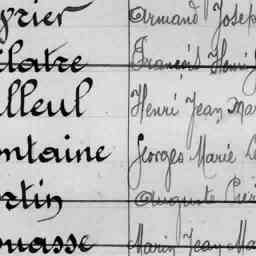 yrier Armand Josep
ilatre François Henri
illeul Henri Jean Mar
ontaine Georges Marie L
artin Auguste Pier
ouasse Marin Jean Ma